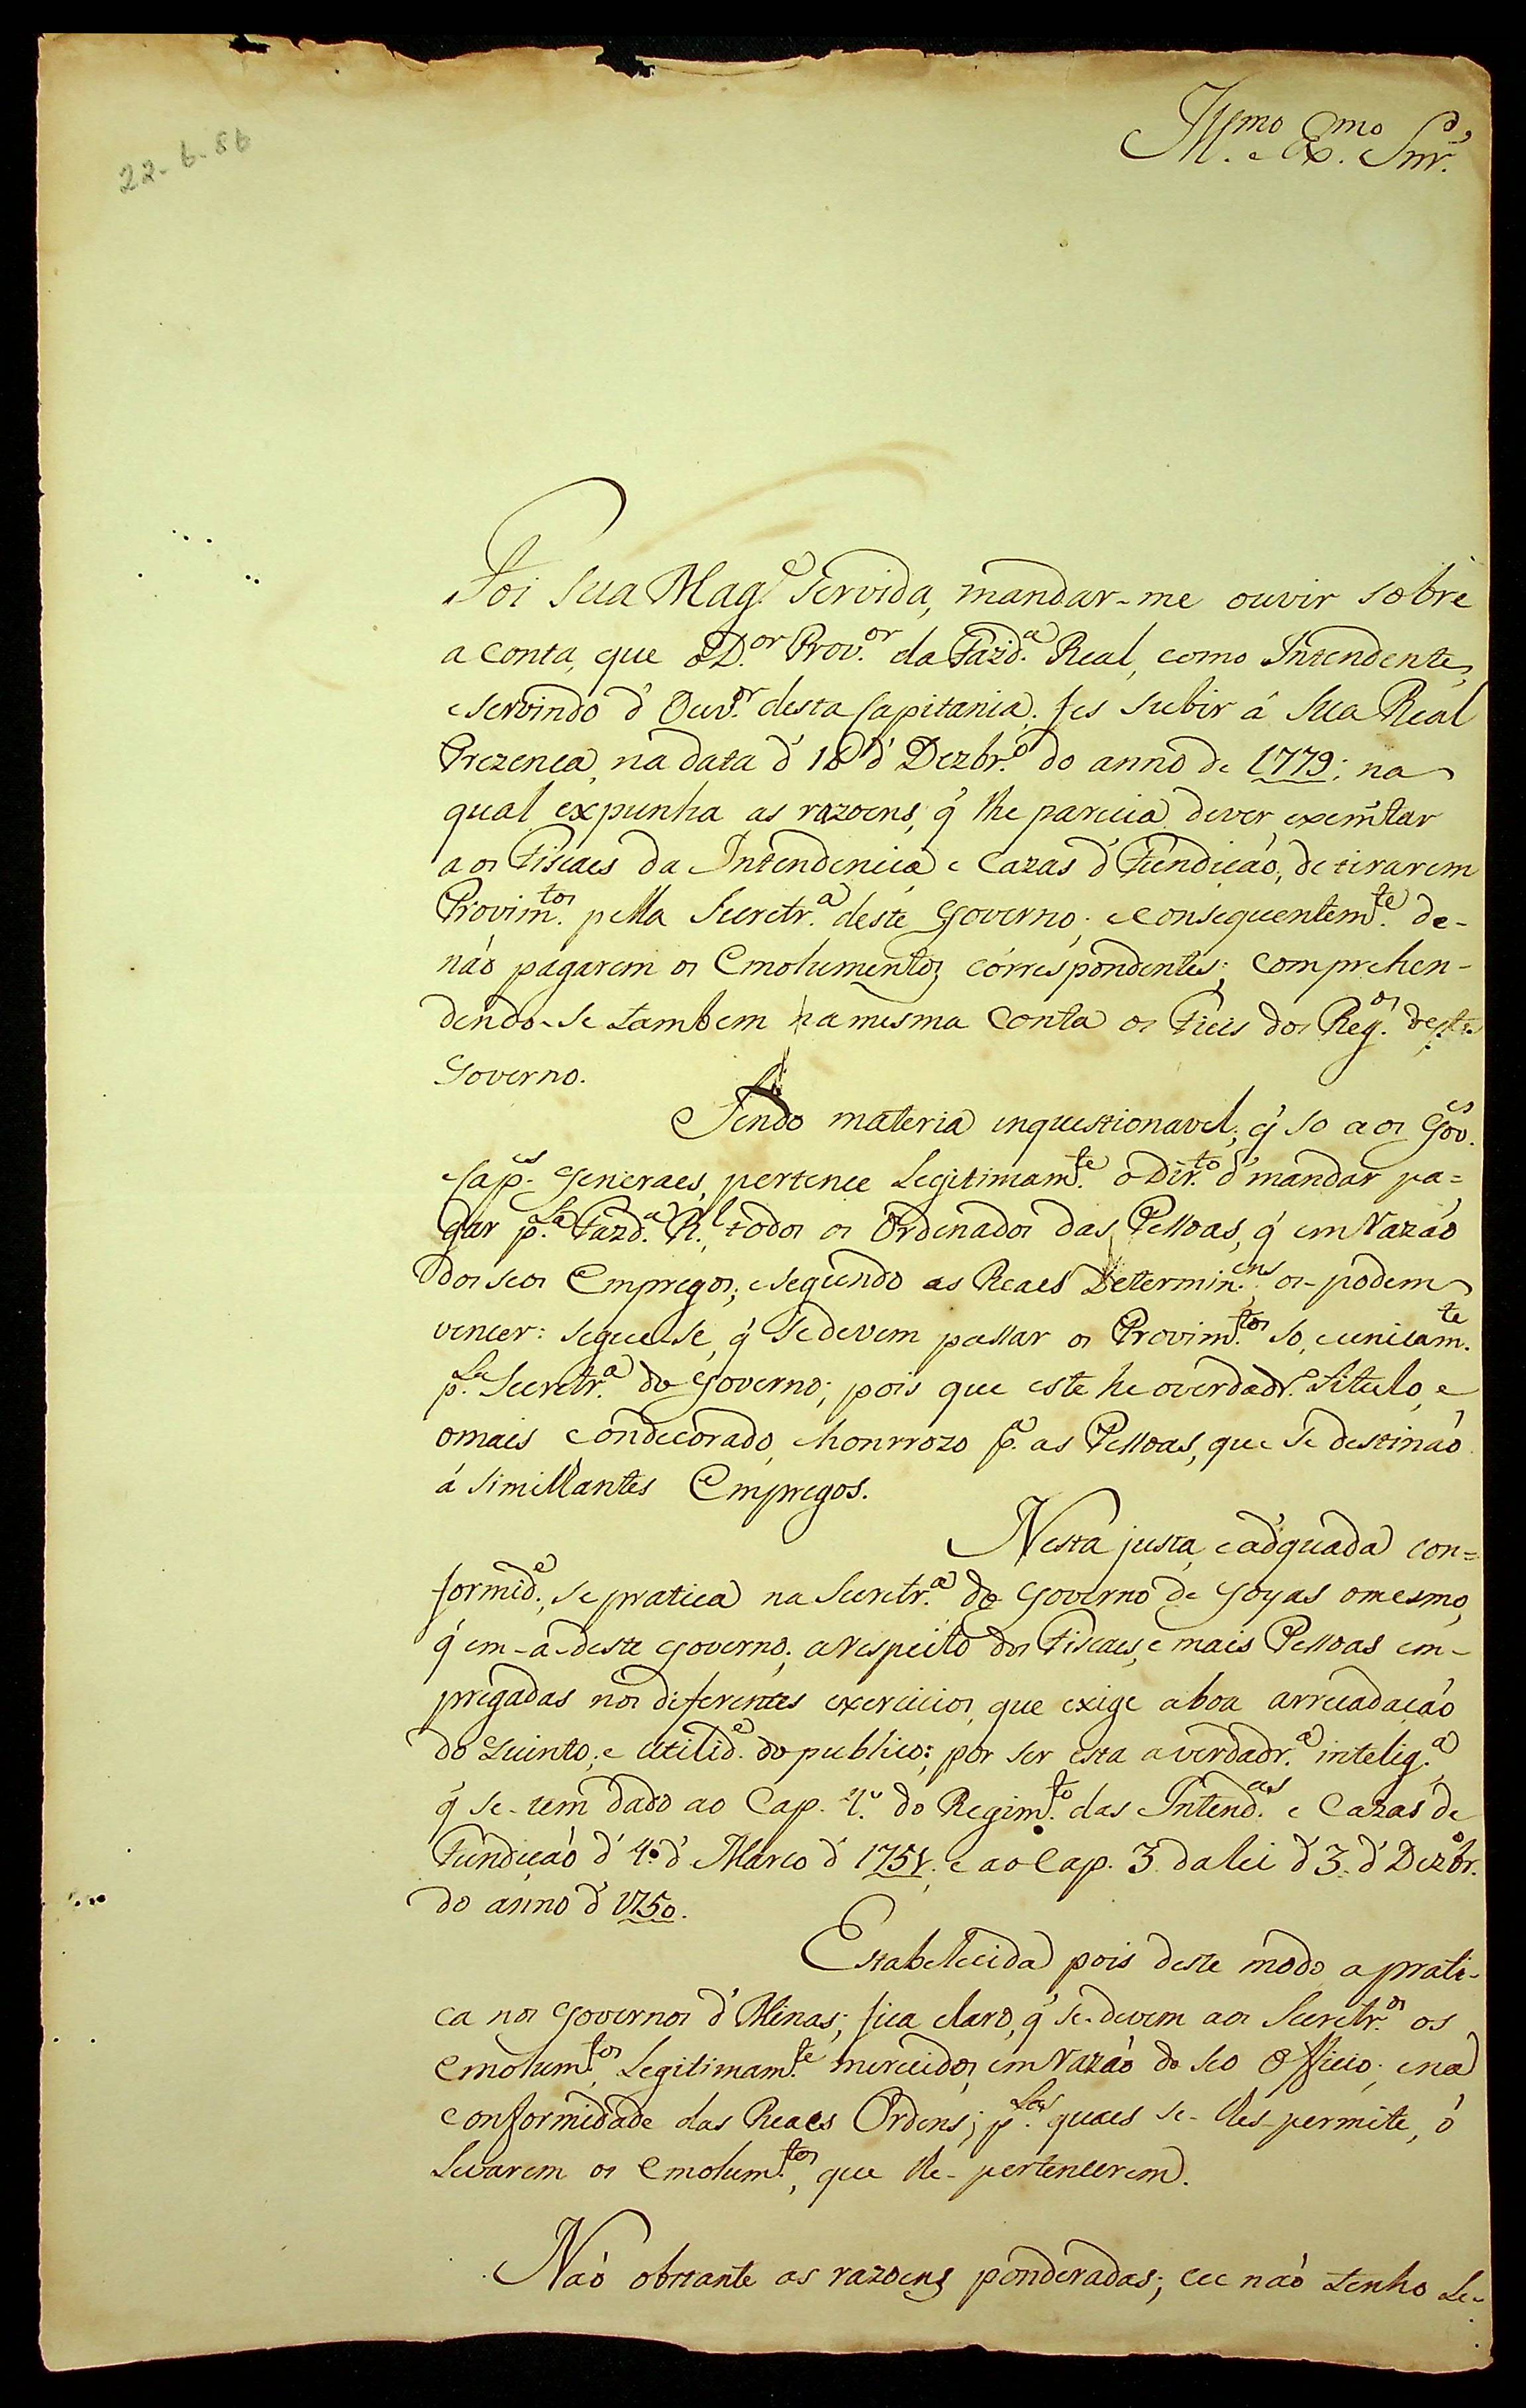 22-6-86
Ill.mo e Ex.mo Snr.
Foi Sua Mag.e Servida, mandar-me ouvir sobre
a Conta, que o D.or Prov.or da Fazd.a Real, como Intendente,
e servindo d' Ouv.or desta Capitania, fes subir á Sua Real
Prezenca, na data d' 18 d' Dezbr.o do anno de 1779; na
qual expunha as razoens, q' lhe parecia dever exemtar
aos Fiscaes da Intendencia e Cazas d' Fundicáo, de tirarem
Provim.tos pella Secretr.a deste Governo; e consequentem.te de-
náo pagarem os Emolumentos córrespondentes; comprehen-
dendo-se tambem na mesma Conta os Fieis dos Reg.os deste
Governo.
Sendo materia inquestionavel, q' so aos Gov.es
e Cap.es Generaes, pertence Legitimam.te o Dir.to d' mandar pa=
gar p.la Fazd.a R.l todos os Ordenados das Pessoas, q' em Razáo
dos seos Empregos; e segundo as Reaes Determin.ens os-podem
vencer: segue-se, q' se devem passar os Provim.tos so, e unicam.te
p.la Secretr.a do Governo; pois que este he o verdadr.o Titulo, e
o mais condecorado, e honrrozo p.a as Pessoas, que se destináo
á simillantes Empregos.
Nesta justa, e adquada con=
formid.e, se pratica na Secretr.a do Governo de Goyas o mesmo,
q' em-a-deste Governo; a respeito dos Fiscaes, e mais Pessoas em-
pregadas nos diferentes exercicios, que exige a boa arrecadacáo
do Quinto; e utilid.e do publico; por ser esta a verdadr.a intelig.a
q' se-tem dado ao Cap. 1.o do Regim.to das Intend.as e Cazas de
Fundicáo d' 4. d' Marco d' 1751; e ao Cap. 3. da lei d' 3. d' Dezbr.o
do anno d' 1750.
Estabellecida pois deste modo a prati-
ca nos Governos d' Minas; fica claro, q' se-devem aos Secretr.os os
emolum.tos, Legitimam.te merecidos, em Razáo do seo Officio; e na
conformidade das Reaes Ordens; p.las quaes se-lhes-permite, o
Levarem os emolum.tos, que lhe-pertencerem.
Náo obstante as razoens ponderadas; eu náo tenho Le-